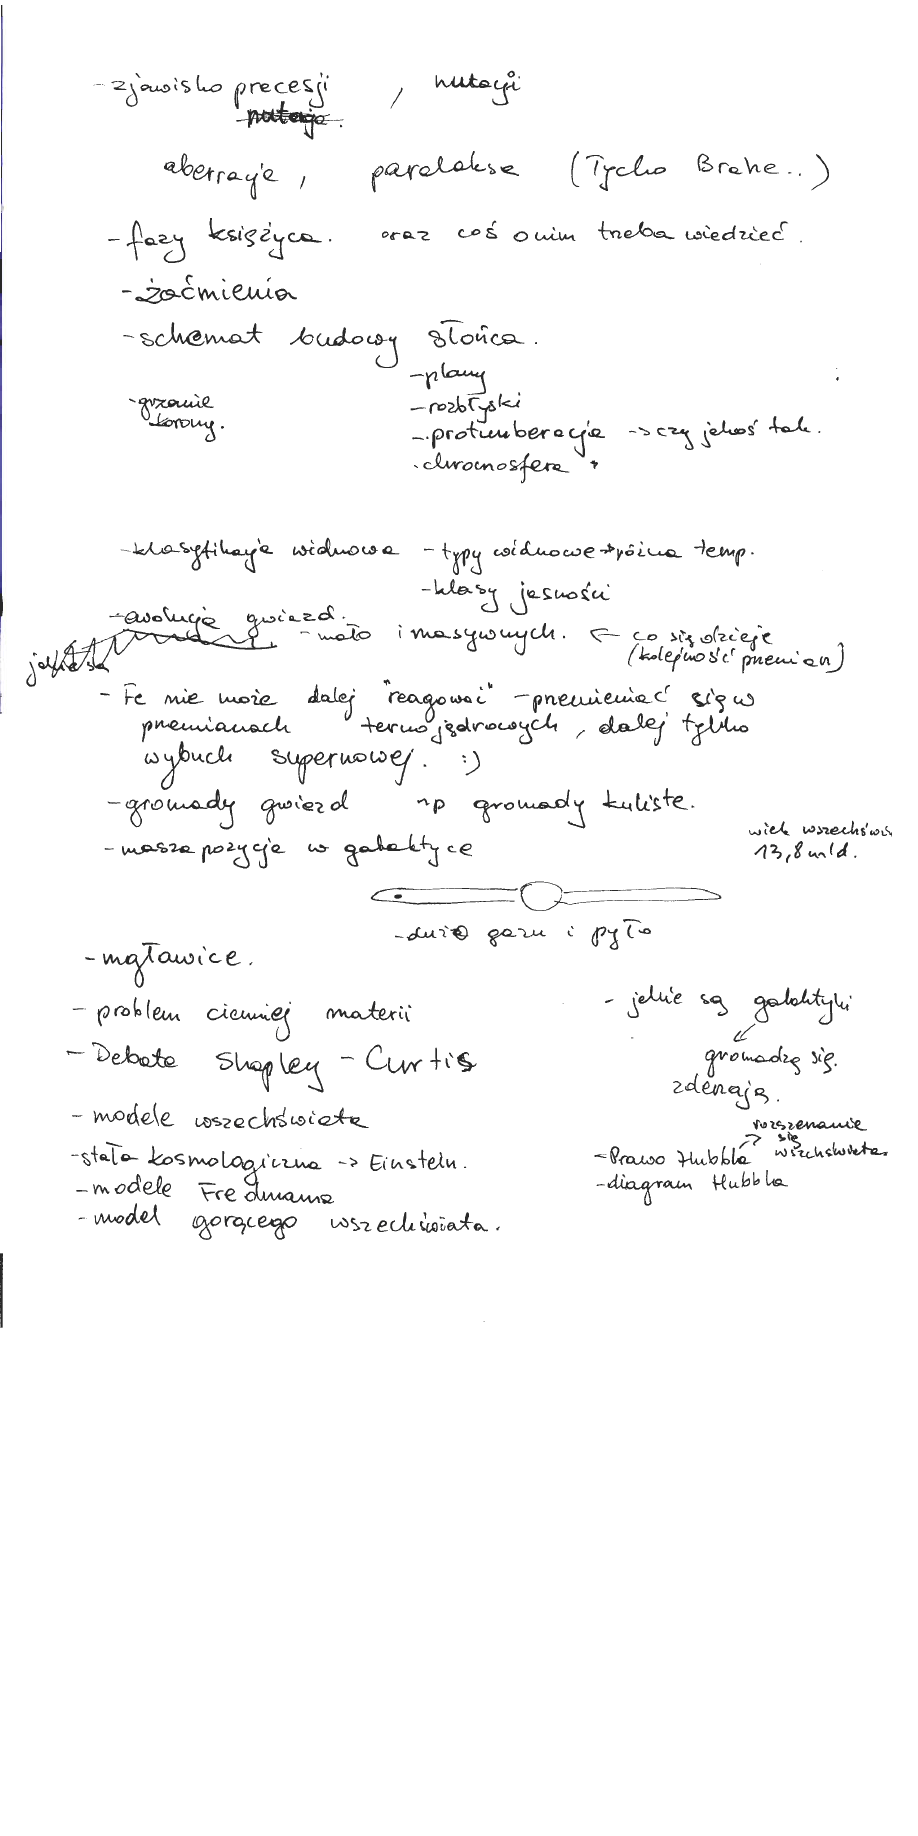 - zjawisko precesji , nutacji
nutacja.
aberracje, paralaksa (Tycho Brahe..)
- fazy księżyca. oraz coś o nim trzeba wiedzieć.
- zaćmienia
- schemat budowy słońca.
- plamy
- grzanie - rozbłyski
korony. - protuberacje -> czy jakoś tak.
. chromosfera
- klasyfikacja widmowa - typy widmowe -> różna temp.
- klasy jasności
- ewolucja gwiazd.
- mało i masywnych. <- co się dzieje
(kolejność przemian)
- Fe nie może dalej "reagować" - przemieniać się w
przemianach termojądrowych, dalej tylko
wybuch supernowej. :)
- gromady gwiazd np gromady kuliste.
wiek wszechświ
- nasza pozycja w galaktyce 13,8 mld.
- dużo gazu i pyło
- mgławice.
- jakie są galaktyki
- problem ciemnej materii
gromadzą się.
- Debata Shapley - Curtis
zderzają.
- modele wszechświata
rozszerzanie
się
- stała kosmologiczna -> Einstein. - Prawo Hubbla wszechświata.
- modele Fredmana - diagram Hubbla
- model gorącego wszechświata.